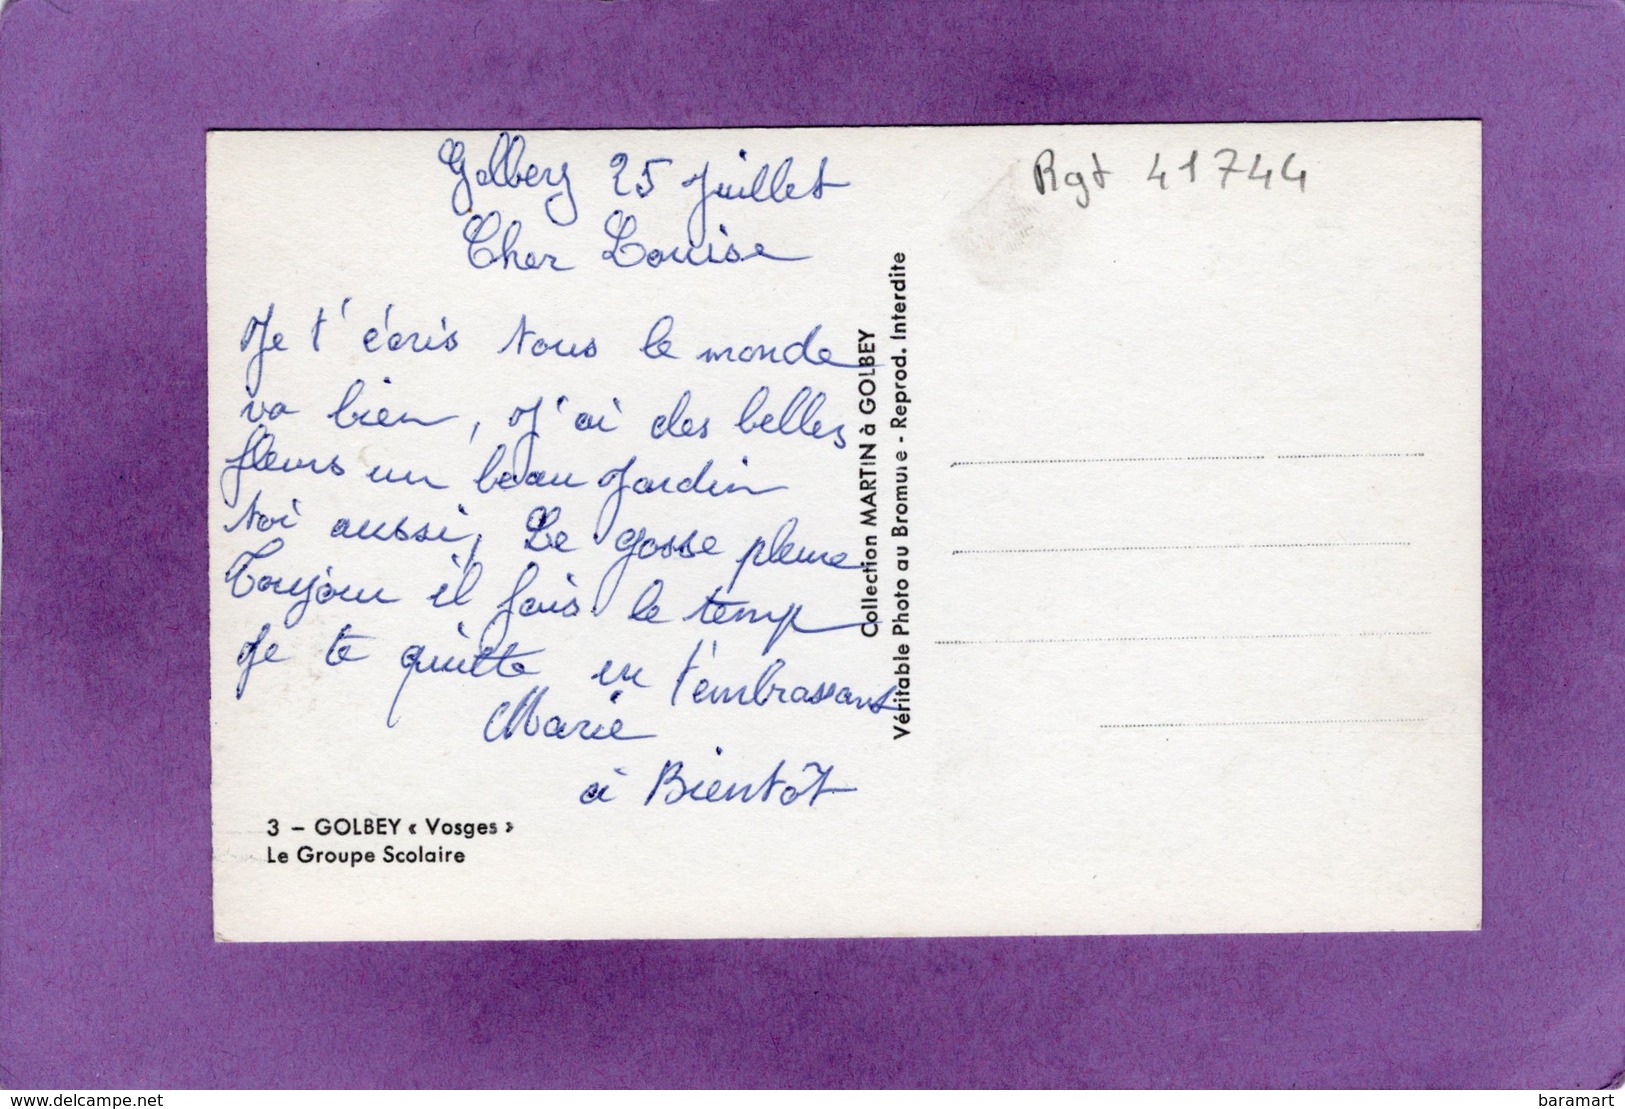 Golbey 25 Juillet
Cher Louise
Je t'écris tous le monde
va bien, J'ai des belles
fleurs un beau Jardin
toi aussi, Le gosse pleure
Toujour il fais le temp
Je te quitte en t'embrassant
Marie
à Bientôt
3 – GOLBEY « Vosges »
Le Groupe Scolaire
Collection MARTIN à GOLBEY
Véritable Photo au Bromure - Reprod. Interdite
Rgt 41744
www.delcampe.net
baramart